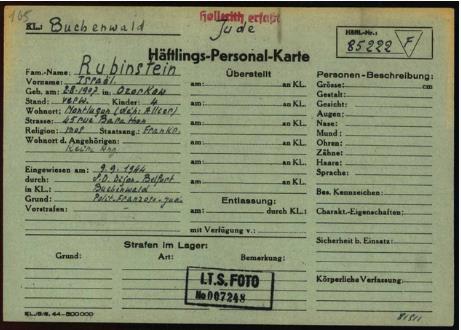 165
KL.: Buchenwald
Hollerith erfaßt
Jude
Häftl.-Nr.:
85222
F
Häftlings-Personal-Karte
Fam.-Name: Rubinstein
Vorname: Israël
Geb. am: 28.1907 in: Ozorkow
Stand: verw. Kinder: 4
Wohnort: Montluçon (dép. Allier)
Strasse: Barathon
Religion: mos Staatsang.: Frankr.
Wohnort d. Angehörigen:
Keine Ang.
Eingewiesen am: 9.9.1944
durch: Dijon-Belfort
in KL.: Buchenwald
Grund: Polit-Franzose-Jude
Vorstrafen:
Überstellt
am: an KL.
am: an KL.
am: an KL.
am: an KL.
am: an KL.
am: an KL.
Entlassung:
am: durch KL.:
mit Verfügung v.:
Personen-Beschreibung:
Grösse: cm
Gestalt:
Gesicht:
Augen:
Nase:
Mund:
Ohren:
Zähne:
Haare:
Sprache:
Bes. Kennzeichen:
Charakt.-Eigenschaften:
Sicherheit b. Einsatz:
Körperliche Verfassung:
Strafen im Lager:
Grund: Art: Bemerkung:
I.T.S. FOTO
No 007248